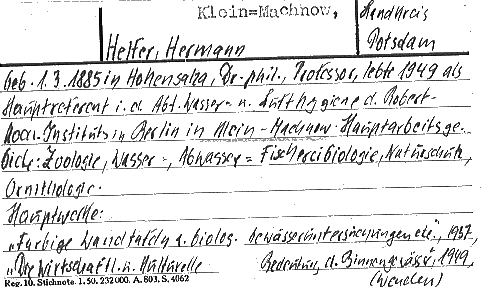 Klein=Machnow, Landkreis
Potsdam
Helfer, Hermann
Geb. 1.3.1885 in Hohensalza, Dr. phil., Professor, lebte 1949 als
Hauptreferent i. d. Abt. Wasser- u. Lufthygiene d. Robert-
Koch-Instituts in Berlin in Klein-Machnow. Hauptarbeitsge-
biete: Zoologie, Wasser-, Abwasser= Fischereibiologie, Naturschutz,
Ornithologie.
Hauptwerke:
„Farbige Wandtafeln z. biolog. Gewässeruntersuchungen etc", 1937,
„Die wirtschaftl. u. kulturelle Bedeutung d. Binnengewässer", 1949,
Reg. 10. Stichnote. 1. 50. 232000. A. 803. S. 4062